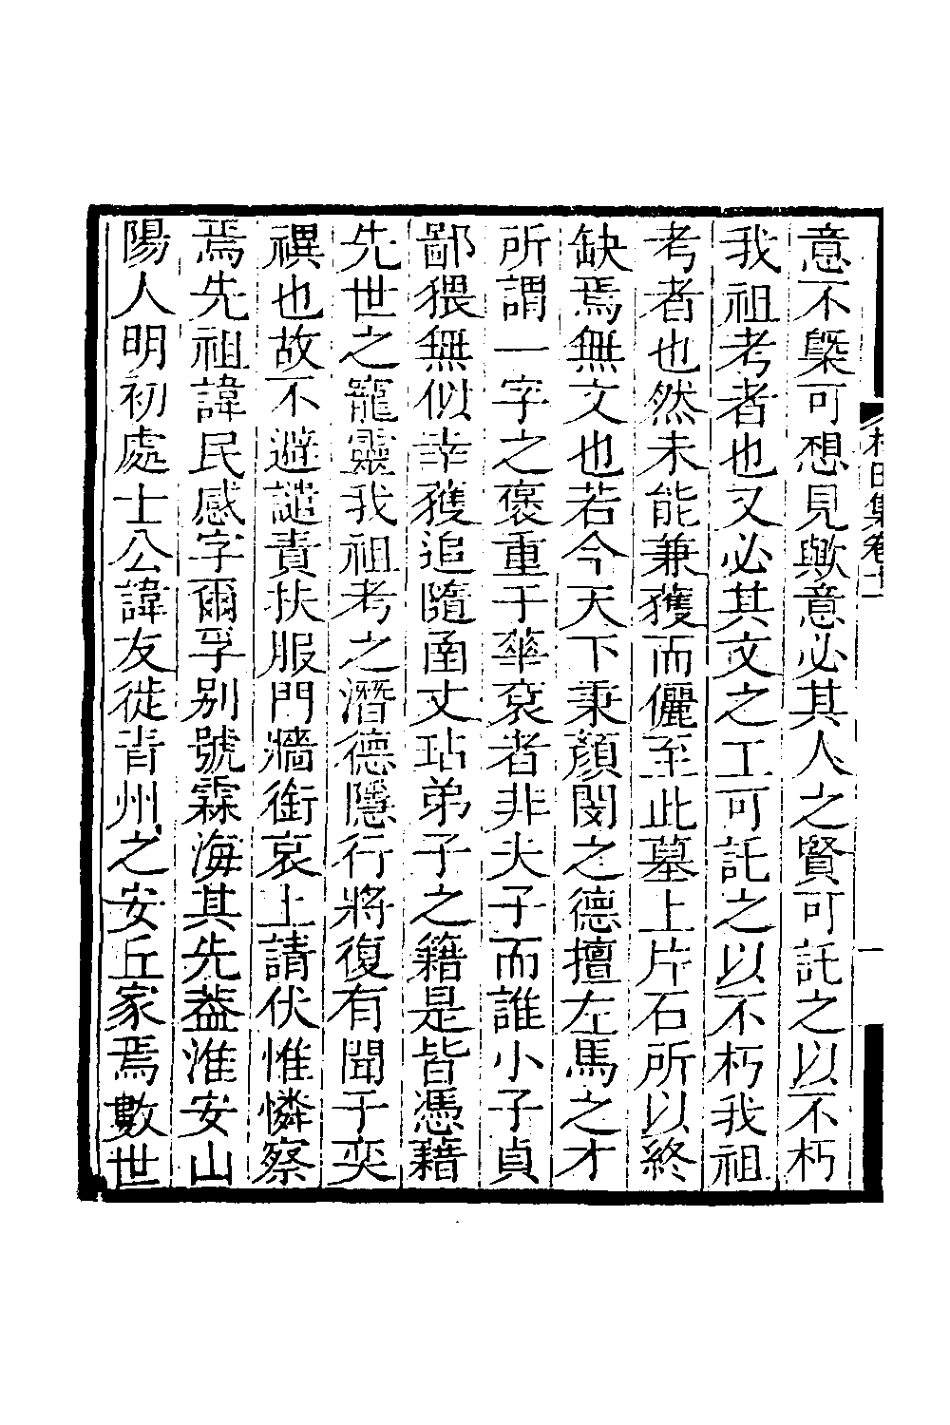 意不槩可想見歟意必其人之賢可託之以不朽
我祖考者也又必其文之工可託之以不朽我祖
考者也然未能兼獲而儷至此墓上片石所以終
缺焉無文也若今天下秉顏閔之德擅左馬之才
所謂一字之褒重于華袞者非夫子而誰小子貞
鄙猥無似幸獲追隨函丈玷弟子之籍是皆憑藉
先世之寵靈我祖考之潛德隱行將復有聞于奕
禩也故不避譴責扶服門牆銜哀上請伏惟憐察
焉先祖諱民感字爾孚别號霖海其先葢淮安山
陽人明初處士公諱友徙青州之安丘家焉數世
集卷十
一